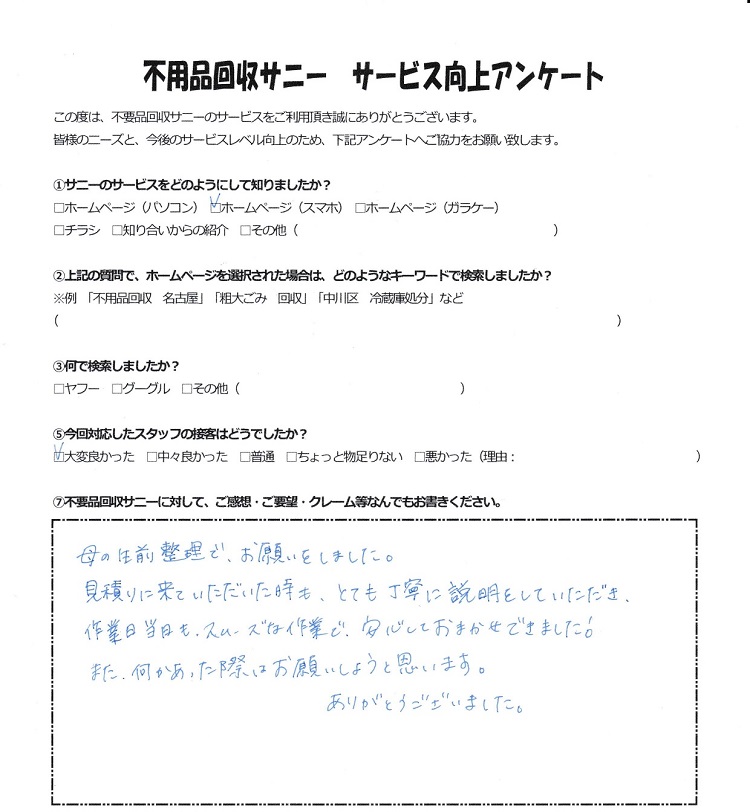 不用品回収サニー　サービス向上アンケート
この度は、不要品回収サニーのサービスをご利用頂き誠にありがとうございます。
皆様のニーズと、今後のサービスレベル向上のため、下記アンケートへご協力をお願い致します。
①サニーのサービスをどのようにして知りましたか？
□ホームページ（パソコン）　☑ホームページ（スマホ）　□ホームページ（ガラケー）
□チラシ　□知り合いからの紹介　□その他（　　　　　　　　　　）
②上記の質問で、ホームページを選択された場合は、どのようなキーワードで検索しましたか？
※例　「不用品回収　名古屋」「粗大ごみ　回収」「中川区　冷蔵庫処分」など
（　　　　　　　　　　）
③何で検索しましたか？
□ヤフー　□グーグル　□その他（　　　　　　　　　　）
⑤今回対応したスタッフの接客はどうでしたか？
☑大変良かった　□中々良かった　□普通　□ちょっと物足りない　□悪かった（理由：　　　　　　　　　　）
⑦不要品回収サニーに対して、ご感想・ご要望・クレーム等なんでもお書きください。
母の生前整理で、お願いをしました。
見積りに来ていただいた時も、とても丁寧に説明をしていただき、
作業日当日も、スムーズな作業で、安心しておまかせできました！
また、何かあった際はお願いしようと思います。
ありがとうございました。